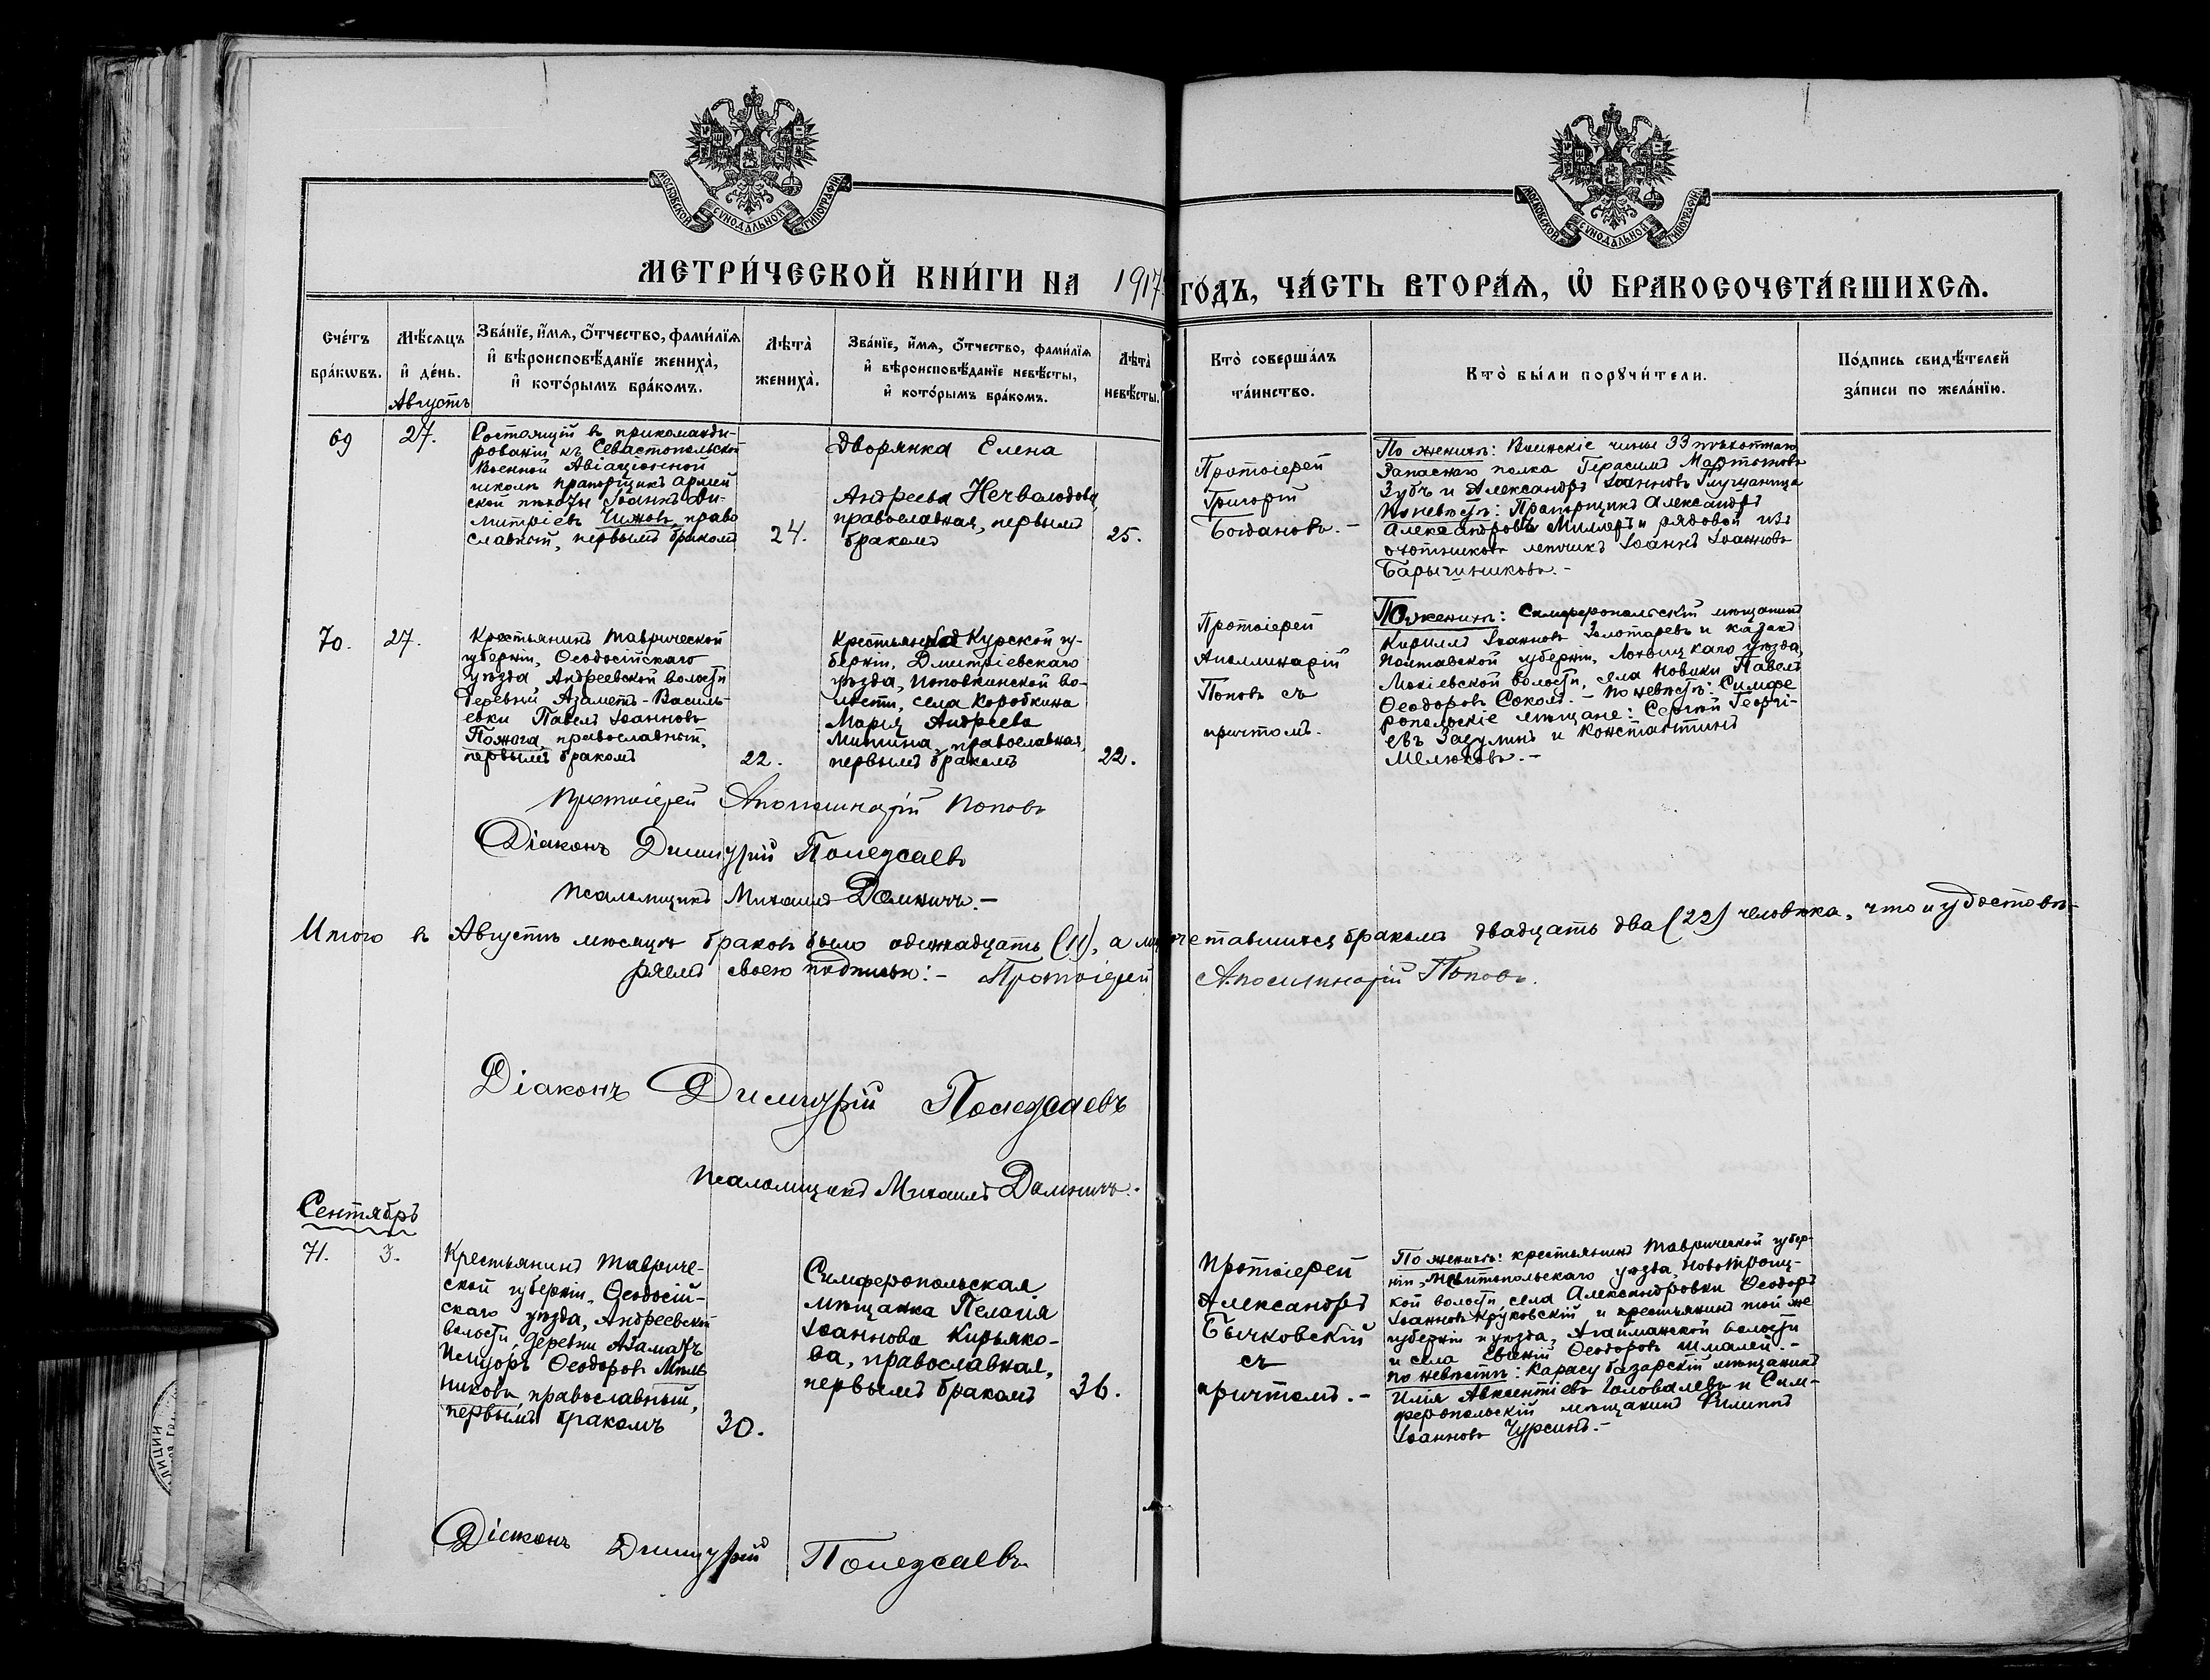 МОСКОВСКОЙ СѴНОДАЛЬНОЙ ТИПОГРАФІИ
МОСКОВСКОЙ СѴНОДАЛЬНОЙ ТИПОГРАФІИ
МЕТРИ́ЧЕСКОЙ КНИ́ГИ НА 1917 ГО́ДЪ, ЧА́СТЬ ВТОРА́Ѧ, Ѡ҆ БРАКОСОЧЕТА́ВШИХСѦ.
Сче́тъ
бра́кѡвъ.
Мѣ́сѧцъ
и҆ де́нь.
Августъ
Зва́нїе, и҆́мѧ, ѻ҆́тчество, фами́лїѧ
и҆ вѣроисповѣ́данїе жениха̀,
и҆ кото́рымъ бра́комъ.
Лѣта̀
жениха̀.
Зва́нїе, и҆́мѧ, ѻ҆́тчество, фами́лїѧ
и҆ вѣроисповѣ́данїе невѣ́сты,
и҆ кото́рымъ бра́комъ.
Лѣта̀
невѣ́сты.
Кто̀ соверша́лъ
та́инство.
Кто̀ бы́ли порꙋчи́тели.
По́дпись свидѣ́телей
за́писи по жела́нїю.
69
27.
Состоящій въ прикоманди-
рованіи къ Севастопольской
Военной Авіаціонной
школѣ прапорщикъ армей
ской пѣхоты Іоаннъ Ди-
митріевъ Чижовъ, право
славный, первымъ бракомъ
24.
Дворянка Елена
Андреева Нечволодова,
православная, первымъ
бракомъ
25.
Протоіерей
Григорій
Богдановъ.-
По женихѣ: Воинскіе чины 33 пѣхотнаго
Запаснаго полка Герасимъ Мартыновъ
Зубъ и Александръ Іоанновъ Глущаница
По невѣстѣ: Прапорщикъ Александръ
Александровъ Миллеръ и рядовой изъ
охотниковъ летчикъ Іоаннъ Іоанновъ
Барышниковъ.-
70.
27.
Крестьянинъ Таврической
губерніи, Ѳеодосійскаго
уѣзда Андреевской волости
деревни Азаметъ-Василь-
евки Павелъ Іоанновъ
Пожога, православный,
первымъ бракомъ
22.
Крестьянка Курской гу-
берніи, Дмитріевскаго
уѣзда, Поповкинской во-
лости, села Коробкина
Марія Андреева
Митина, православная,
первымъ бракомъ
22.
Протоіерей
Аполлинарій
Поповъ съ
причтомъ.
По женихѣ: Симферопольскій мѣщанинъ
Кириллъ Іоанновъ Золотаревъ и казакъ
Полтавской губерніи, Лохвицкаго уѣзда,
волости, села Новики Павелъ
Ѳеодоровъ Соколъ.- По невѣстѣ: Симфе
ропольскіе мѣщане: Сергѣй Георгі-
евъ Задулинъ и Константинъ
Мелюковъ.-
Протоіерей Аполлинарій Поповъ
Діаконъ Димитрій Полежаевъ
Псаломщикъ Михаилъ Домничъ.-
Итого въ Августѣ мѣсяцѣ браковъ было одиннадцать (11), а сочетавшихся бракомъ двадцать два (22) человѣка, что и удостовѣ-
ряемъ своею подписью:- Протоіерей Аполлинарій Поповъ.
Діаконъ Димитрій Полежаевъ
Псаломщикъ Михаилъ Домничъ.
Сентябрь
71.
3.
Крестьянинъ Тавриче-
ской губерніи, Ѳеодосій-
скаго уѣзда, Андреевской
волости, деревни Азаматъ
Ѳеодоровъ Мель
никовъ, православный,
первымъ бракомъ
30.
Симферопольская
мѣщанка Пелагія
Іоаннова Кирьяко-
ва, православная,
первымъ бракомъ
36.
Протоіерей
Александръ
Бычковскій
съ
причтомъ.-
По женихѣ: крестьянинъ Таврической губер-
ніи, Мелитопольскаго уѣзда, Новотроиц-
кой волости, села Александровки Ѳеодоръ
Іоанновъ Круковскій и крестьянинъ той же
губерніи и уѣзда, Агайманской волости
и села Евгеній Ѳеодоровъ Шмалей.-
По невѣстѣ: Карасубазарскій мѣщанинъ
Илія Авксентіевъ Головалевъ и Сим-
феропольскій мѣщанинъ Филиппъ
Іоанновъ Чурсинъ.-
Діаконъ Димитрій Полежаевъ